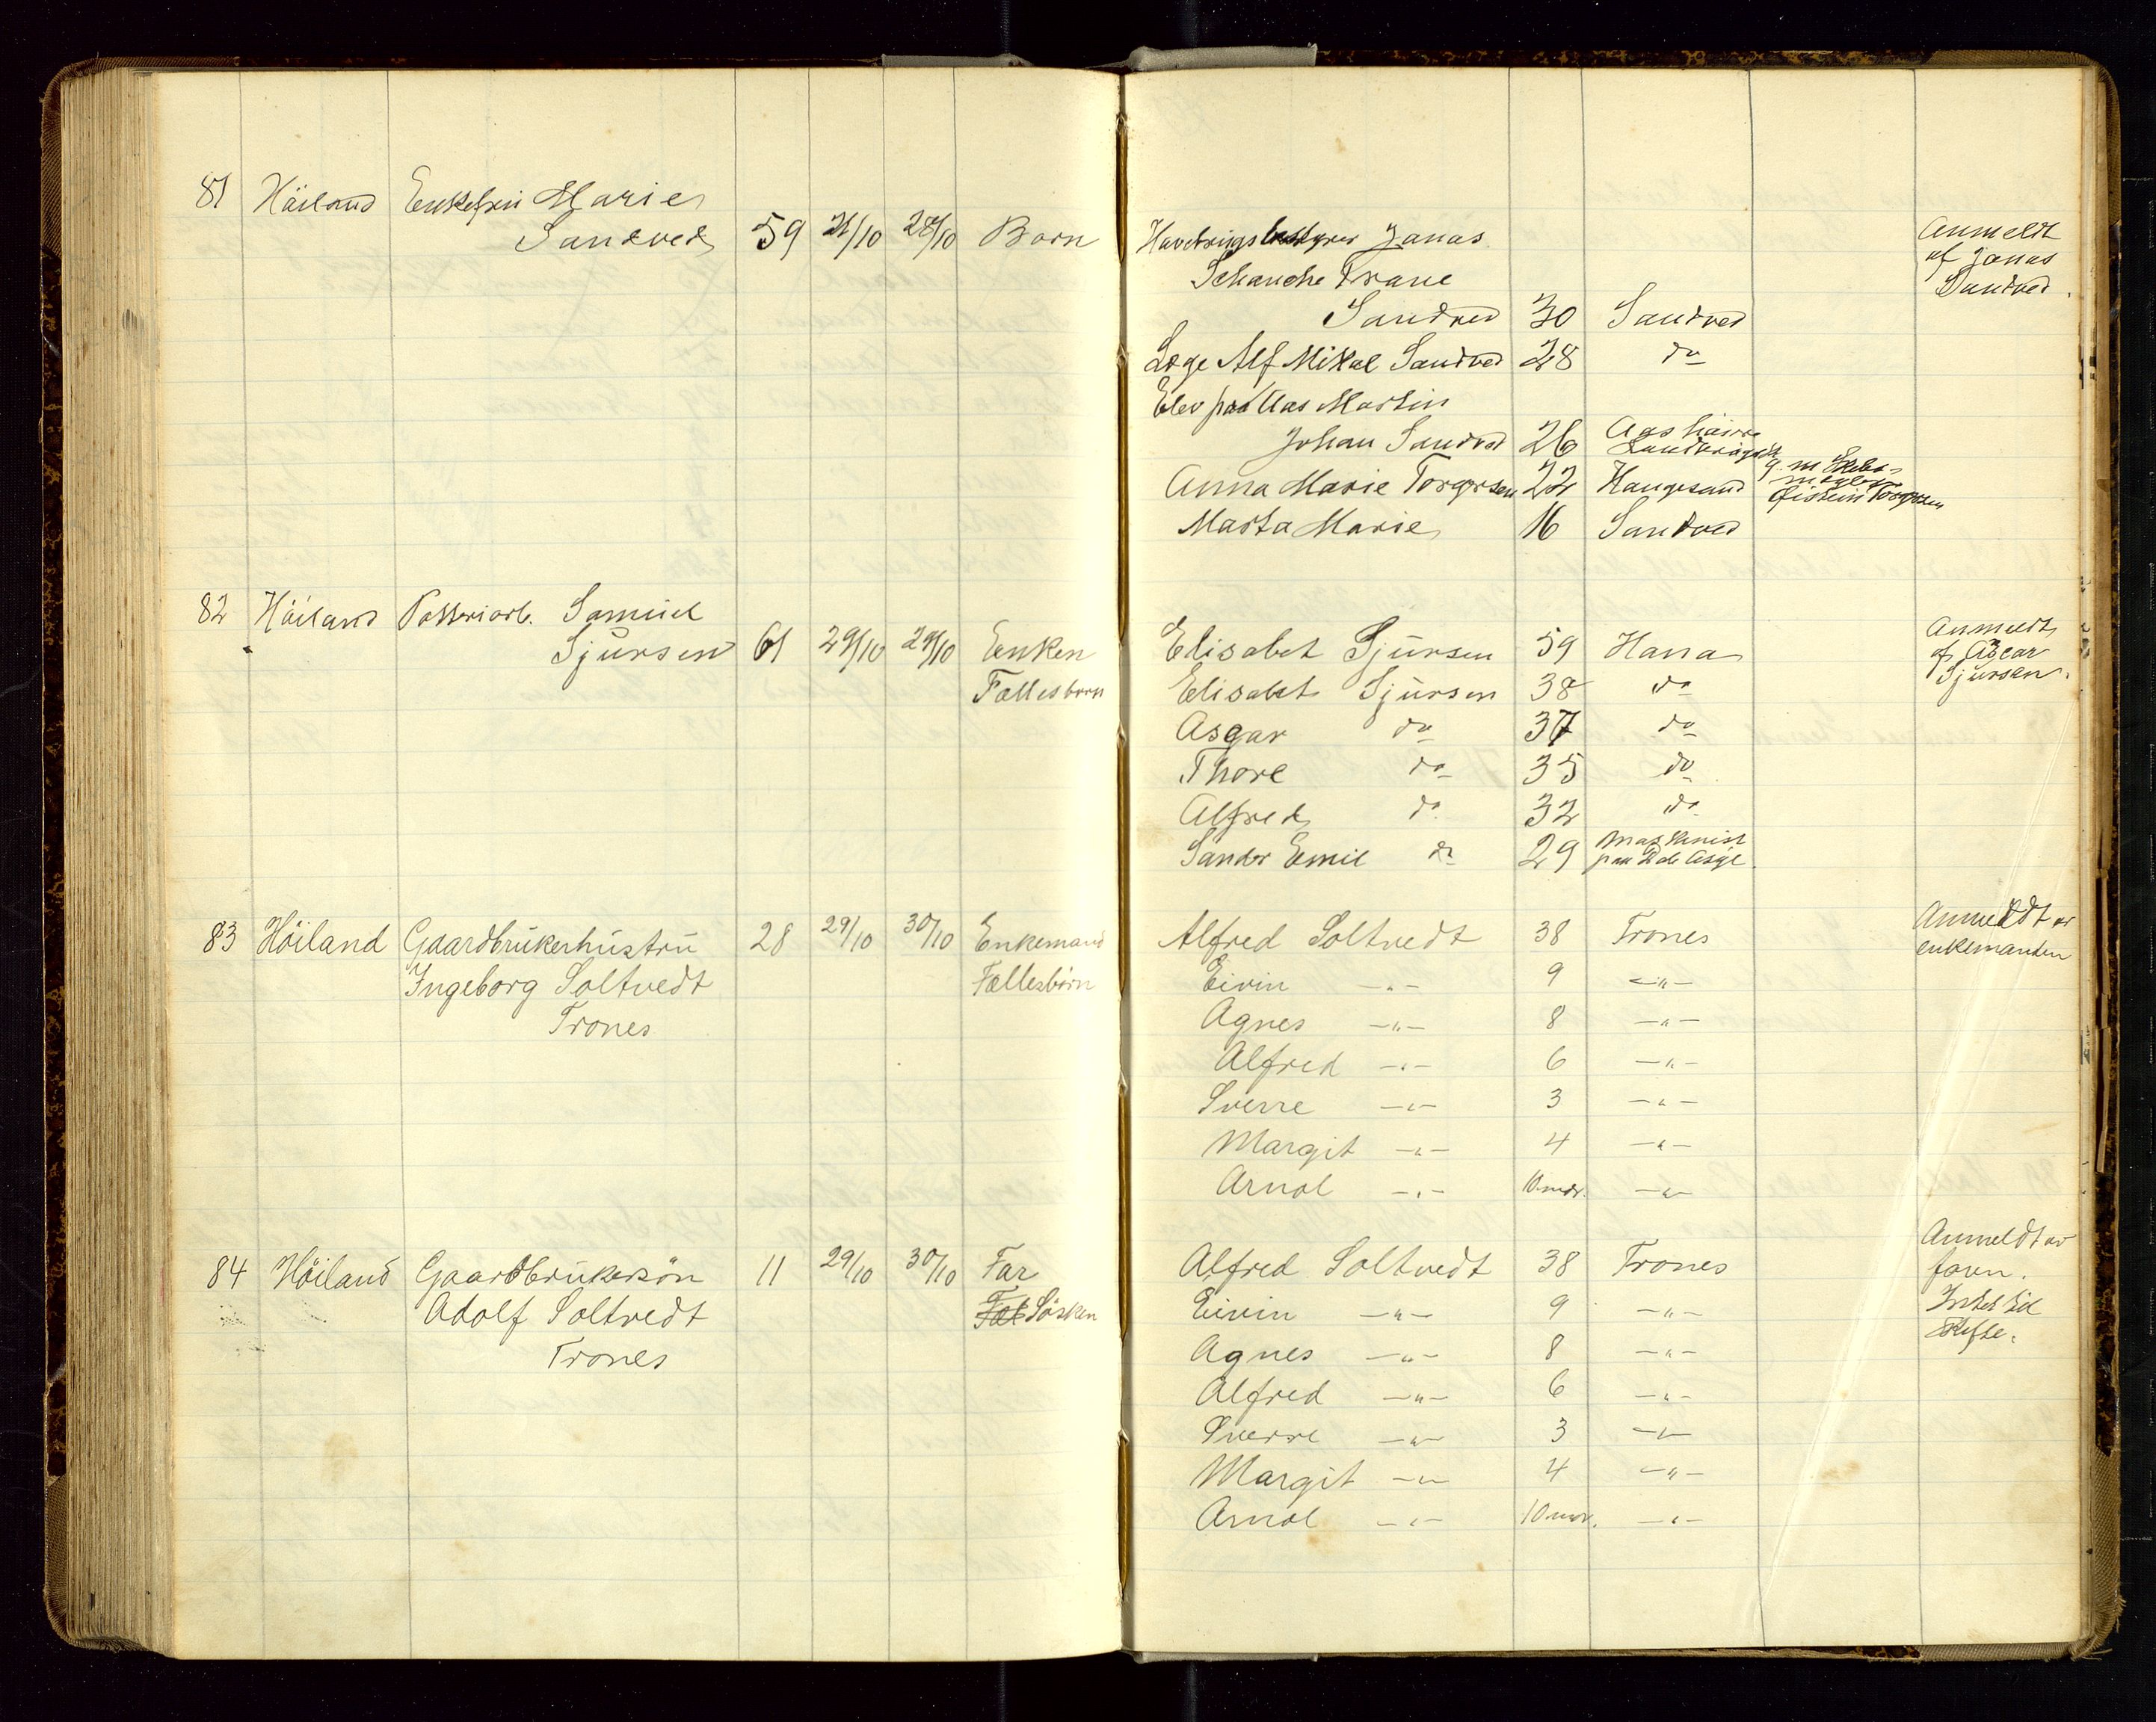 81 Häiland Enkefru Marie
Sandved 59 21/10 28/10 Born
Jonas
Schanche Trane
Sandved 30 Sandved
Læge Alf Mikal Sandved 28 do
Elev paa Aas Martin
Johan Sandved 26 Aas høiere
Anna Marie Torgersen 22 Haugesund g. m.
Øistein Torgersen
Marta Marie 16 Sandved
Anmeldt
af Jonas
Sandved.
82 Häiland Potteriarb. Samuel
Sjursen 61 29/10 29/10 Enken Elisabet Sjursen 59 Hana
Fællesborn Elisabet Sjursen 38 do
Asgar do 37 do
Thore do 35 do
Alfred do 32 do
Sander Emil do 29 Maskinist
Anmeldt
af Asear
Sjursen.
83 Höiland Gaardbrukerhustru 28 29/10 30/10 Enkemand Alfred Soltvedt 38 Trones Anmeldt av
Ingeborg Soltvedt Fællesbörn Eivin -"- 9 -"- enkemanden
Trones Agnes -"- 8 -"-
Alfred -"- 6 -"-
Sverre -"- 3 -"-
Margit -"- 4 -"-
Arnol -"- 10 mdr. -"-
84 Höiland Gaardbrukersön 11 29/10 30/10 Far Alfred Soltvedt 38 Trones Anmeldt av
Adolf Soltvedt Fæl Sösken Eivin -"- 9 -"- faren.
Trones Agnes -"- 8 -"- Intet til
Alfred -"- 6 -"- skifte.
Sverre -"- 3 -"-
Margit -"- 4 -"-
Arnol -"- 10 mdr. -"-